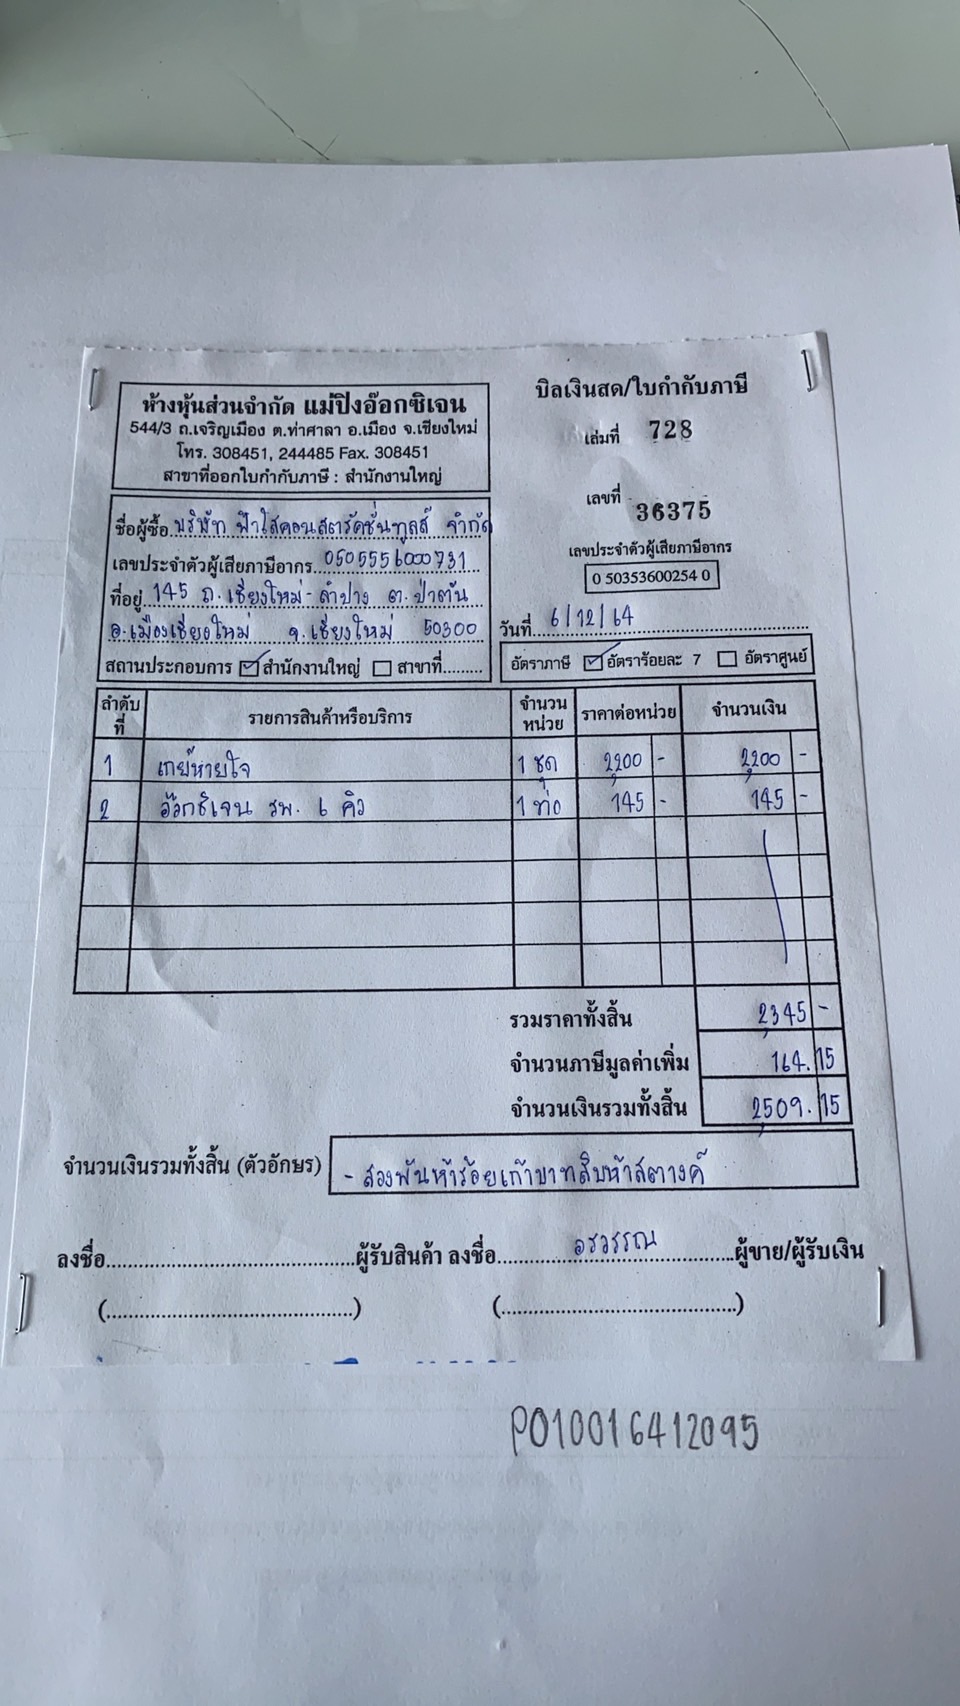 ห้างหุ้นส่วนจำกัด แม่ปิงอ๊อกซิเจน
544/3 ถ.เจริญเมือง ต.ท่าศาลา อ.เมือง จ.เชียงใหม่
โทร. 308451, 244485 Fax. 308451
สาขาที่ออกใบกำกับภาษี : สำนักงานใหญ่
บิลเงินสด/ใบกำกับภาษี
เล่มที่ 728
เลขที่ 36375
เลขประจำตัวผู้เสียภาษีอากร
0 50353600254 0
ชื่อผู้ซื้อ บริษัท ฟ้าใสคอนสตารัคชั่นทูลส์ จำกัด
เลขประจำตัวผู้เสียภาษีอากร 0505556000731
ที่อยู่ 145 ถ.เชียงใหม่-ลำปาง ต.ป่าตัน
อ.เมืองเชียงใหม่ จ.เชียงใหม่ 50300
สถานประกอบการ ☑ สำนักงานใหญ่ ☐ สาขาที่.........
วันที่ 6/12/64
อัตราภาษี ☑ อัตราร้อยละ 7 ☐ อัตราศูนย์
ลำดับที่ รายการสินค้าหรือบริการ จำนวนหน่วย ราคาต่อหน่วย จำนวนเงิน
1 เกย์หายใจ 1 ชุด 2,200 - 2,200 -
2 อ๊อกซิเจน รพ. 6 คิว 1 ท่อ 145 - 145 -
รวมราคาทั้งสิ้น 2,345 -
จำนวนภาษีมูลค่าเพิ่ม 164.15
จำนวนเงินรวมทั้งสิ้น 2,509.15
จำนวนเงินรวมทั้งสิ้น (ตัวอักษร) - สองพันห้าร้อยเก้าบาทสิบห้าสตางค์
ลงชื่อ..........ผู้รับสินค้า ลงชื่อ อรวรรณ ผู้ขาย/ผู้รับเงิน
(..........) (..........)
PO10016412095